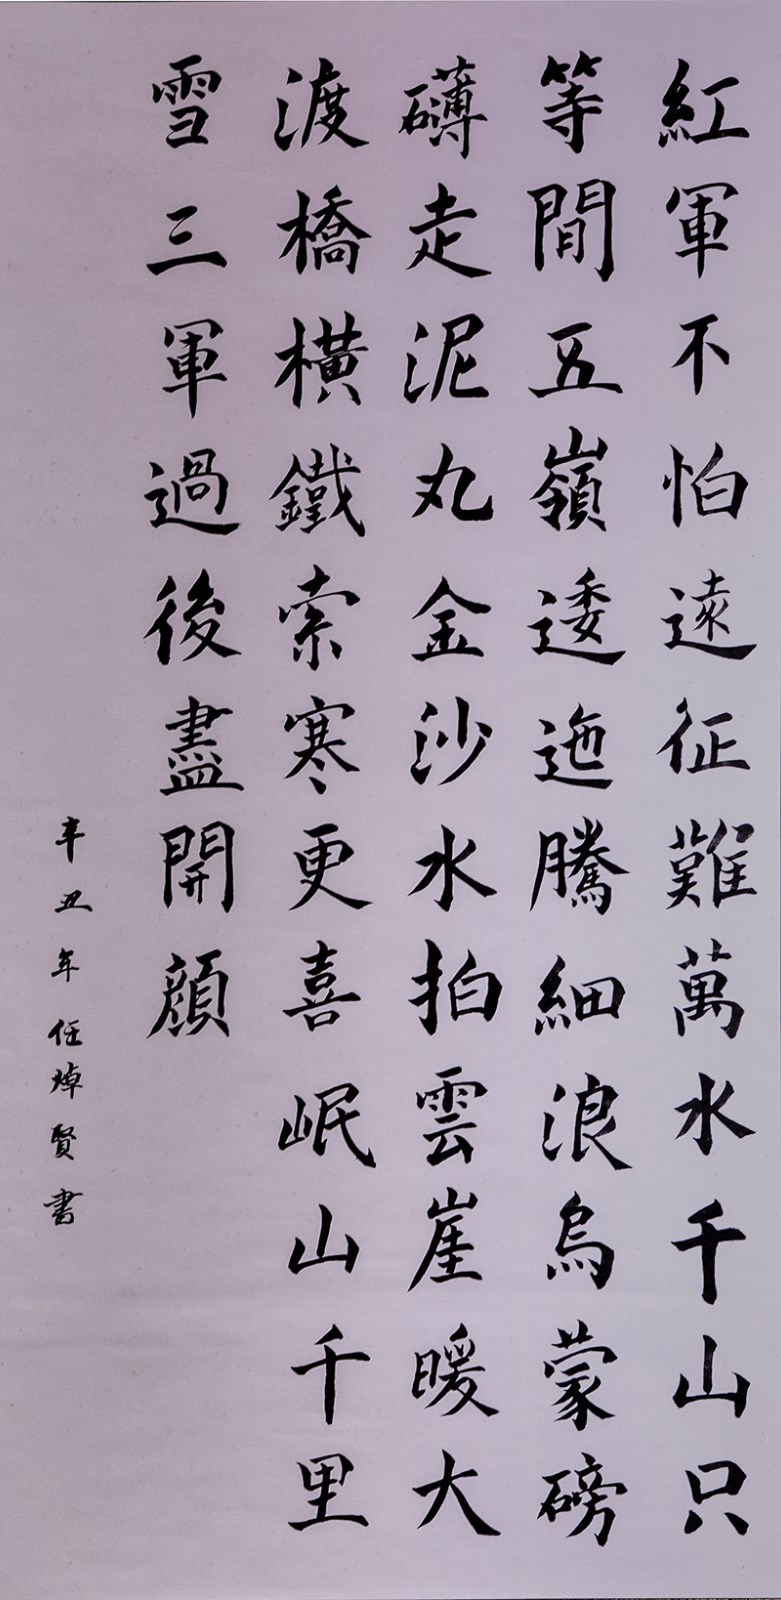 紅軍不怕遠征難萬水千山只
等間五嶺逶迤騰細浪烏蒙磅
礴走泥丸金沙水拍雲崖暖大
渡橋橫鐵索寒更喜岷山千里
雪三軍過後盡開顏
辛丑年任焯賢書